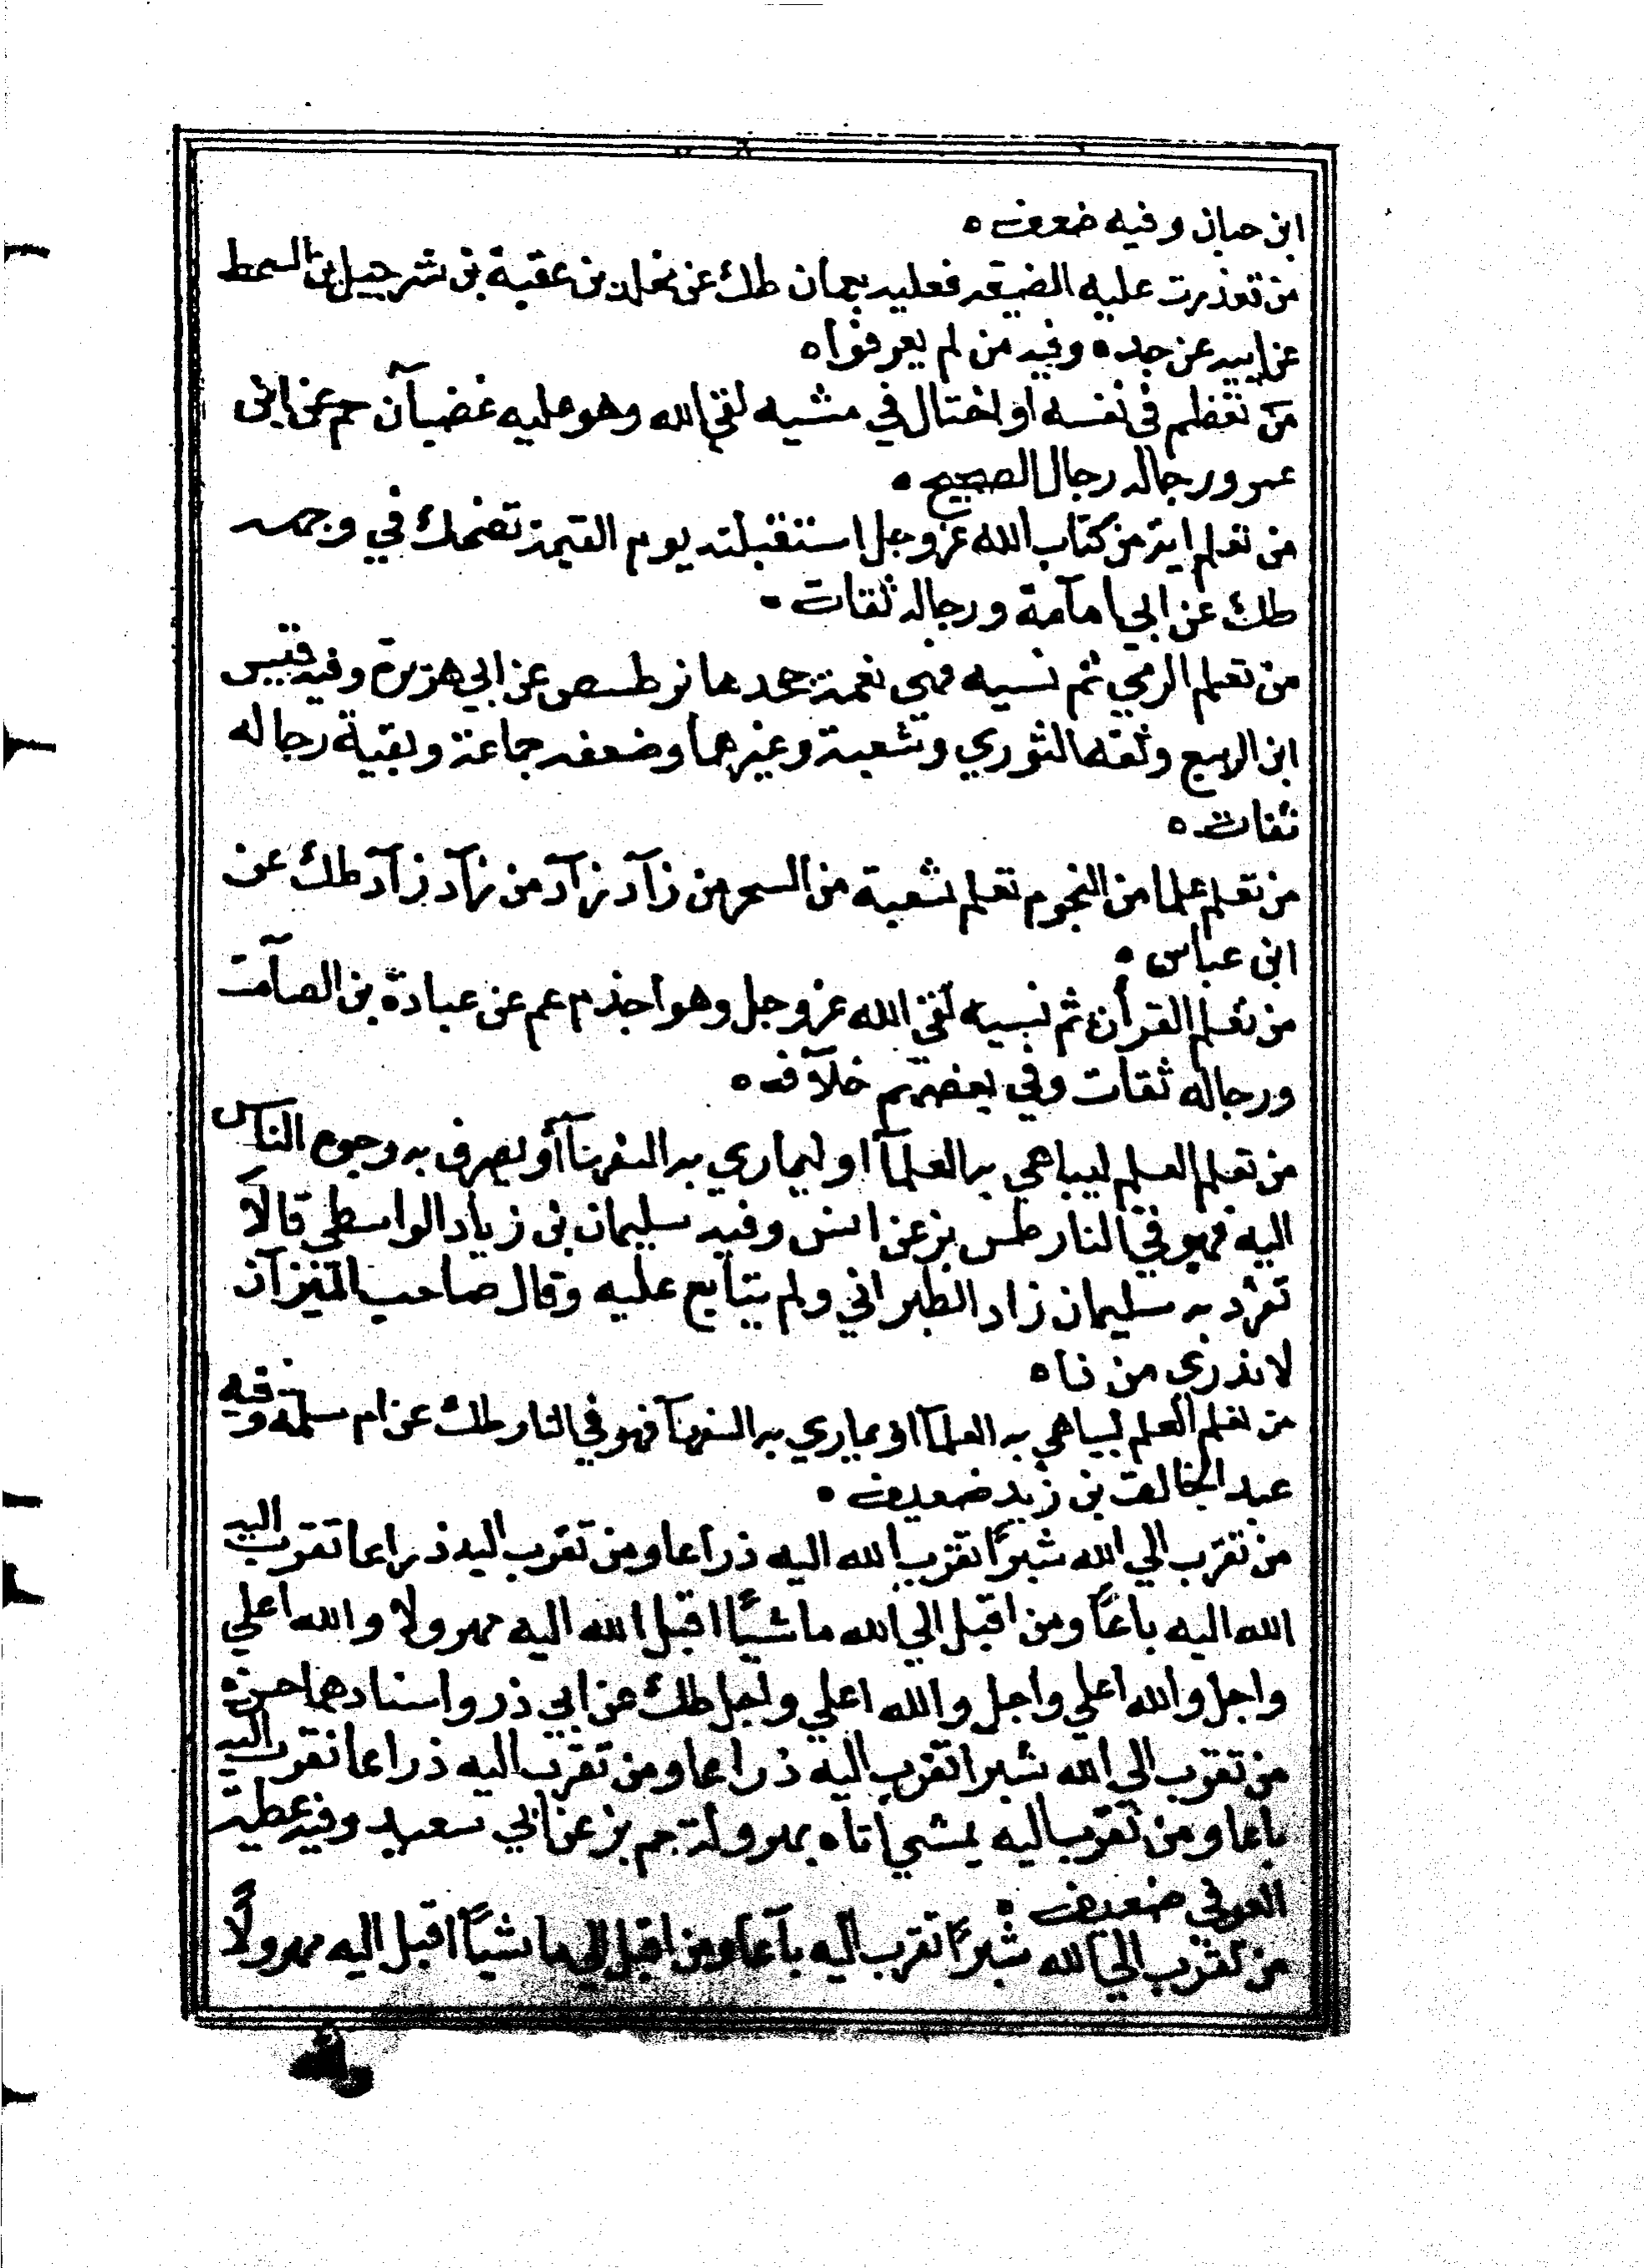 ابن حبان وفيه ضعف ه
من تعذرت عليه الضيعة فعليه بعمان طك عن مخلد بن عقبة بن شرحبيل بن السمط
عن ابيه عن جده ه وفيه من لم يعرفوا ه
من تعظم في نفسه او اختال في مشيه لقي الله وهو عليه غضبان حم عن ابن
عمر ورجاله رجال الصحيح ه
من تعلم اية من كتاب الله عز وجل استقبلته يوم القيمة تضحك في وجهه
طك عن ابي امامة ورجاله ثقات ه
من تعلم الرمي ثم نسيه فهي نعمة جحدها بز طس ص عن ابي هريرة وفيه قيس
ابن الربيع وثقه الثوري وشعبة وغيرهما وضعفه جماعة وبقية رجاله
ثقات ه
من تعلم علما من النجوم تعلم شعبة من السحر من زاد زاد من زاد زاد طك عن
ابن عباس ه
من تعلم القرأن ثم نسيه لقي الله عز وجل وهو اجذم عم عن عبادة بن الصامت
ورجاله ثقات وفي بعضهم خلاف ه
من تعلم العلم ليباهي به العلمآ او ليماري به السفهآ أو يصرف به وجوه الناس
اليه فهو في النار طس بز عن انس وفيه سليمان بن زياد الواسطي قالا
تفرد به سليمان زاد الطبراني ولم يتابع عليه وقال صاحب الميزان
لا ندري من ذا ه
من تعلم العلم ليباهي به العلمآ او يماري به السفهآ فهو في النار طك عن ام سلمة وفيه
عبد الخالق بن زيد ضعيف ه
من تقرب الي الله شبرًا تقرب الله اليه ذراعا ومن تقرب اليه ذراعا تقرب اليه
الله اليه باعًا ومن اقبل الي الله ماشيًا اقبل الله اليه مهرولا والله اعلي
واجل والله اعلي واجل والله اعلي واجل طك عن ابي ذر واسنادهما حسن ه
من تقرب الي الله شبرا تقرب اليه ذراعا ومن تقرب اليه ذراعا تقرب اليه
باعا ومن تقرب اليه يمشي أتاه بهرولة حم بز عن ابي سعيد وفيه عطية
العوفي ضعيف ه
من تقرب الي الله شبرًا تقرب اليه باعا ومن اقبل الي ماشيًا اقبل اليه مهرولًا